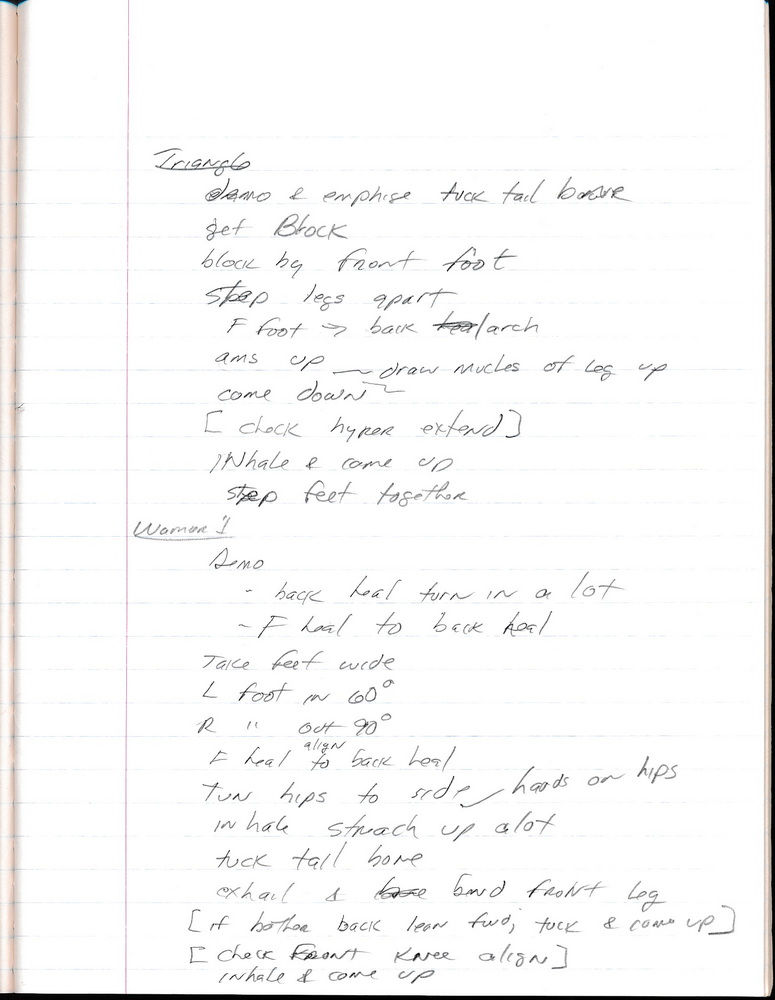 Triangle
demo & emphise tuck tail bone
get Block
block by front foot
step legs apart
F foot -> back heal/arch
ams up - draw mucles of leg up
come down
[check hyper extend]
INhale & come up
step feet together
Warrior 1
Demo
- back heal turn in a lot
- F heal to back heal
Take feet wide
L foot in 60°
R " out 90°
F heal align to back heal
Turn hips to side - hands on hips
inhale streach up alot
tuck tail bone
exhail & bend front leg
[if bother back lean fwd; tuck & come up]
[check Front Knee align]
inhale & come up